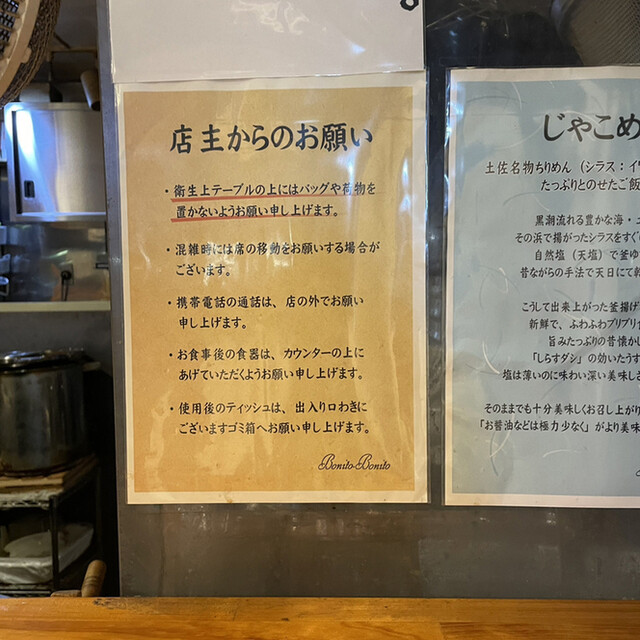 店主からのお願い
・衛生上テーブルの上にはバッグや荷物を
置かないようお願い申し上げます。
・混雑時には席の移動をお願いする場合が
ございます。
・携帯電話の通話は、店の外でお願い
申し上げます。
・お食事後の食器は、カウンターの上に
あげていただくようお願い申し上げます。
・使用後のティッシュは、出入り口わきに
ございますゴミ箱へお願い申し上げます。
Bonito-Bonito
じゃこめ
土佐名物ちりめん（シラス：イ
たっぷりとのせたご飯
黒潮流れる豊かな海・
その浜で揚がったシラスをすぐ
自然塩（天塩）で釜ゆ
昔ながらの手法で天日にて乾
こうして出来上がった釜揚げ
新鮮で、ふわふわプリプリ
旨みたっぷりの昔懐かし
「しらすダシ」の効いたうす
塩は薄いのに味わい深い美味しさ
そのままでも十分美味しくお召し上がり
「お醤油などは極力少なく」がより美味